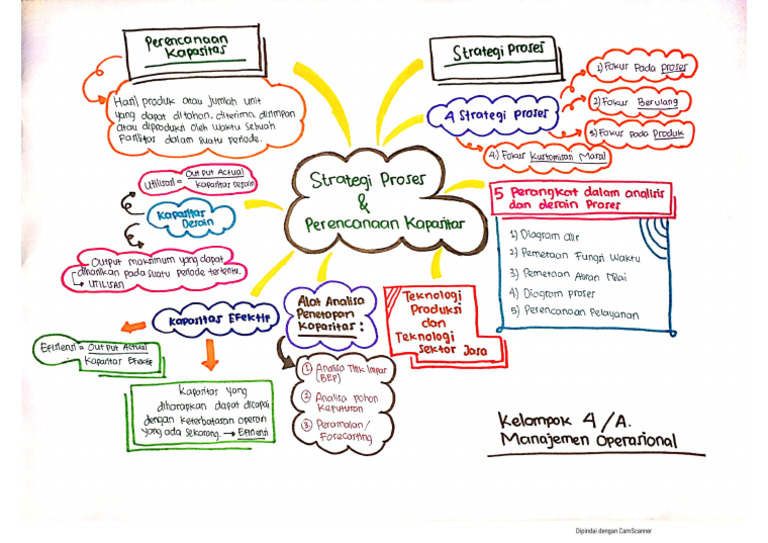 Perencanaan
Kapasitas
Hasil produk atau jumlah unit
yang dapat ditahan, diterima, disimpan
atau diproduksi oleh waktu sebuah
Fasilitas dalam suatu periode.
Strategi Proses
4 Strategi proses
1) Fokus Pada proses
2) Fokus Berulang
3) Fokus pada Produk
4) Fokus Kustomisasi Masal
Strategi Proses
&
Perencanaan Kapasitas
Utilisasi = Output Actual
Kapasitas Desain
Kapasitas
Desain
Output maksimum yang dapat
dihasilkan pada suatu periode tertentu.
↳ UTILISASI
5 Perangkat dalam analisis
dan desain Proses
1) Diagram alir
2) Pemetaan Fungsi Waktu
3) Pemetaan Aliran Nilai
4) Diagram proses
5) Perencanaan Pelayanan
Kapasitas Efektif
Efisiensi = Output Actual
Kapasitas Efektif
Kapasitas yang
diharapkan dapat dicapai
dengan keterbatasan operasi
yang ada sekarang. → Efisiensi
Alat Analisa
Penetapan
Kapasitas :
1 Analisa Titik Impas
(BEP)
2 Analisa pohon
Keputusan
3 Peramalan/
Forecasting
Teknologi
Produksi
dan
Teknologi
Sektor Jasa
Kelompok 4/A.
Manajemen Operasional
Dipindai dengan CamScanner